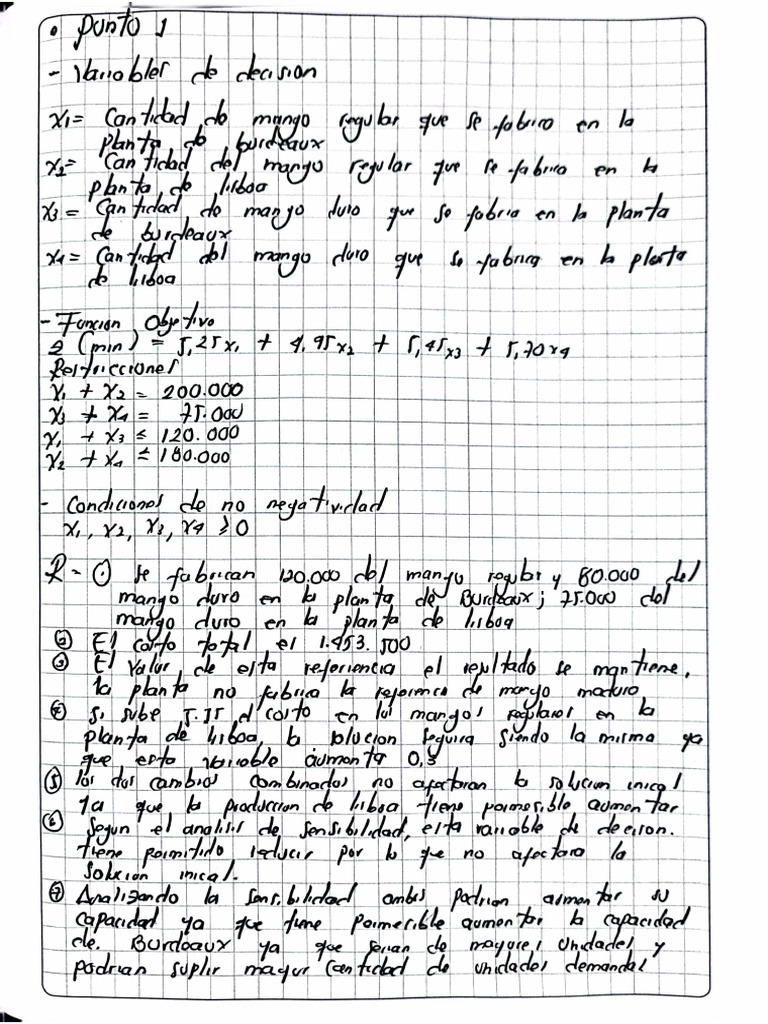 • Punto 1
- Variables de decision
x1= Cantidad de mango regular que se fabrica en la
planta de burdeaux
x2= Cantidad del mango regular que se fabrica en la
planta de lisboa
x3= Cantidad de mango duro que se fabrica en la planta
de burdeaux
x4= Cantidad del mango duro que se fabrica en la planta
de lisboa
- Funcion Objetivo
Z (min) = 5,25x1 + 4,95x2 + 5,45x3 + 5,70x4
Restricciones
x1 + x2 = 200.000
x3 + x4 = 75.000
x1 + x3 ≤ 120.000
x2 + x4 ≤ 180.000
- Condiciones de no negatividad
x1, x2, x3, x4 ≥ 0
R = ① Se fabrican 120.000 del mango regular y 80.000 del
mango duro en la planta de Burdeaux; 75.000 del
mango duro en la planta de lisboa
② El costo total es 1.453.500
③ El valor de esta referencia el resultado se mantiene,
la planta no fabrica la referencia de mango maduro
④ Si sube 5.15 el costo en los mangos regulares en la
planta de lisboa, la solucion seguira siendo la misma ya
que esta variable aumenta 0,3
⑤ los dos cambios combinados no afectaran la solucion inical
ya que la produccion de lisboa tiene permesible aumentar
⑥ Segun el analisis de sensibilidad, esta variable de decision.
tiene permitido reducir por lo que no afectara la
solucion inical.
⑦ Analizando la sensibilidad ambas podrian aumentar su
capacidad ya que tiene permesible aumentar la capacidad
de. Burdeaux ya que serian de mayores unidades y
podrian suplir mayor cantidad de unidades demandas